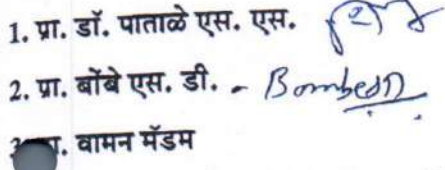 1. प्रा. डॉ. पाताळे एस. एस.
2. प्रा. बोंबे एस. डी. - Bombesd
3. प्रा. वामन मॅडम